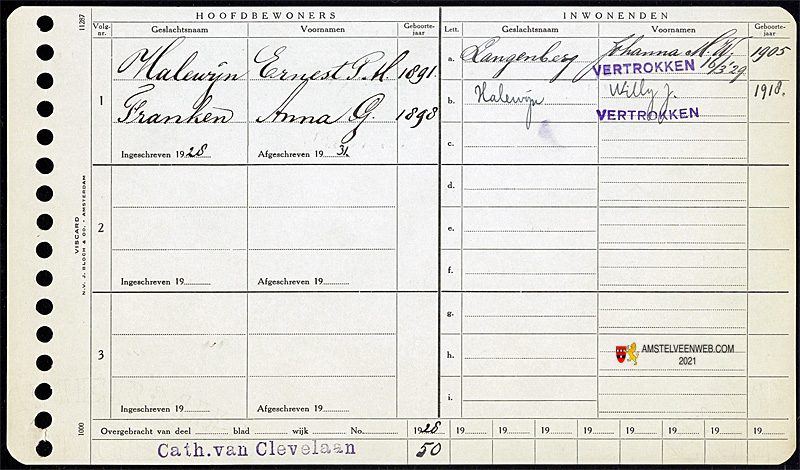 HOOFDBEWONERS
INWONENDEN
11287
Volg-nr.
Geslachtsnaam
Voornamen
Geboorte-jaar
Lett.
Geslachtsnaam
Voornamen
Geboorte-jaar
1
Halewijn Ernest P. H. 1891.
Franken Anna G. 1898
Ingeschreven 1928 Afgeschreven 1931.
a. Langenberg Johanna M. W. 1905
VERTROKKEN 16/3'29.
b. Halewijn Willy J. 1918.
VERTROKKEN
c.
2
Ingeschreven 19 Afgeschreven 19
d.
e.
f.
3
Ingeschreven 19 Afgeschreven 19
g.
h.
i.
AMSTELVEENWEB.COM
2021
VISCARD
N.V. J. BLOCH & CO. - AMSTERDAM
1000
Overgebracht van deel blad wijk No. 1928 19 19 19 19 19 19 19 19
Cath. van Clevelaan 50